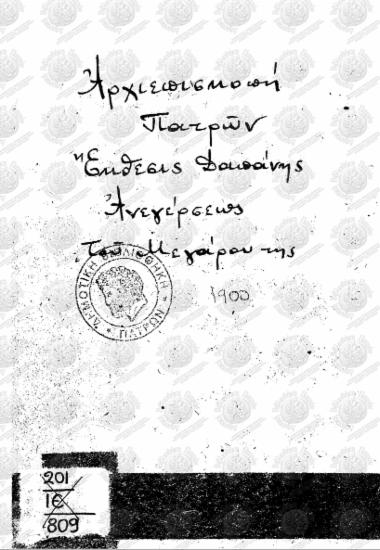 Ἀρχιεπισκοπή
Πατρῶν
Ἔκθεσις Δαπάνης
Ἀνεγέρσεως
Τοῦ Μεγάρου της
ΔΗΜΟΤΙΚΗ ΒΙΒΛΙΟΘΗΚΗ
ΠΑΤΡΩΝ
1900
201
ΙΕ
809